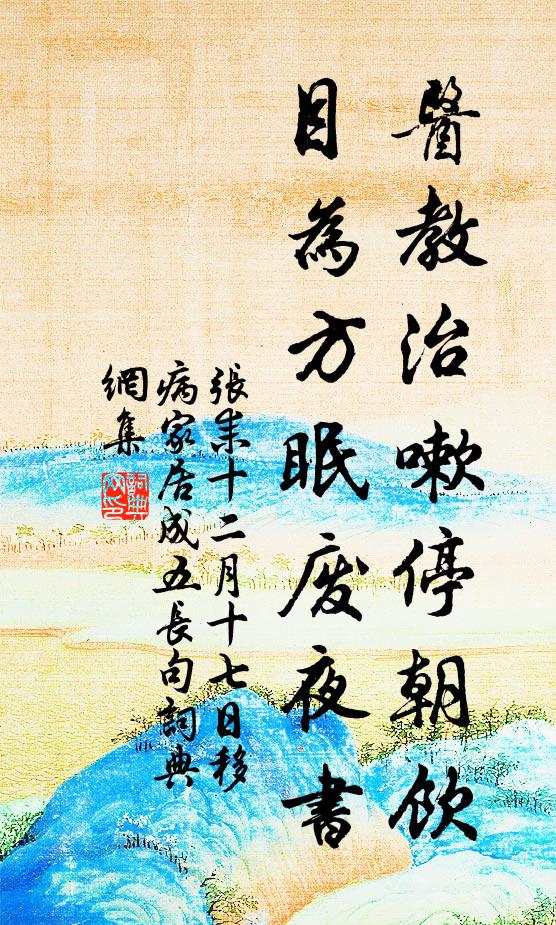 醫教治嗽停朝飲
目為方眠廢夜書
張耒十二月十七日移
病家居成五長句詞典
網集